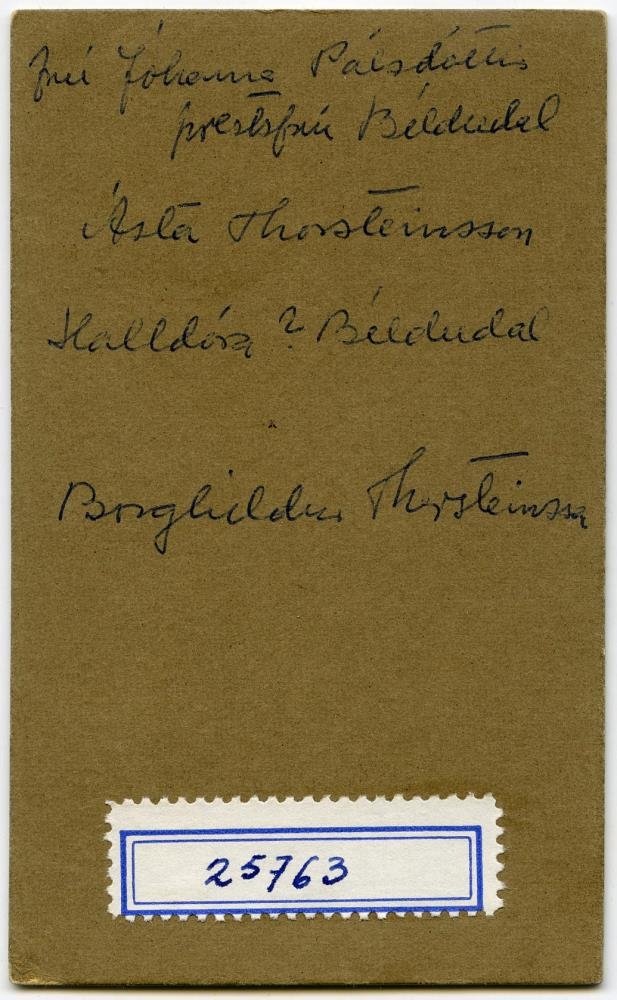 frú Jóhanna Pálsdóttir
prestsfrú Bíldudal
Ásta Thorsteinsson
Halldóra ? Bíldudal
Borghildur Thorsteinsson
25763